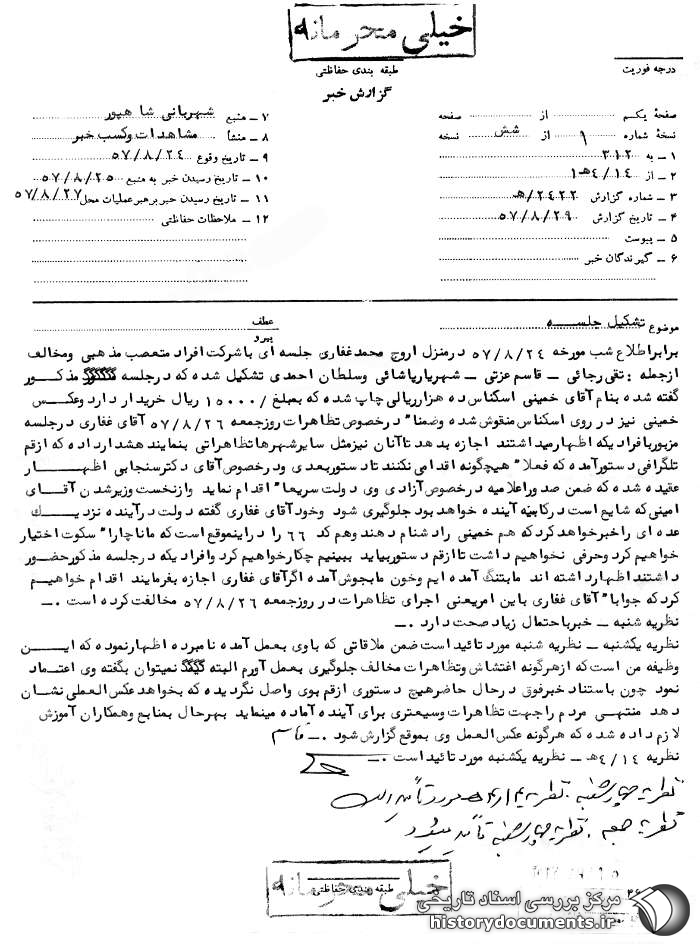 خیلی محرمانه
درجه فوریت
طبقه بندی حفاظتی
گزارش خبر
صفحهٔ یکم از صفحه
نسخهٔ شماره ۱ از شش نسخه
۱ ـ به ۳۱۲
۲ ـ از ۴/۱۴هـ۱
۳ ـ شماره گزارش ۲۴۲۲/هـ
۴ ـ تاریخ گزارش ۵۷/۸/۲۹
۵ ـ پیوست
۶ ـ گیرندگان خبر
۷ ـ منبع شهربانی شاهپور
۸ ـ منشأ مشاهدات وکسب خبر
۹ ـ تاریخ وقوع ۵۷/۸/۲۴
۱۰ ـ تاریخ رسیدن خبر به منبع ۵۷/۸/۲۵
۱۱ ـ تاریخ رسیدن خبر برهبر عملیات محل ۵۷/۸/۲۷
۱۲ ـ ملاحظات حفاظتی
موضوع تشکیل جلسـه
عطف
پیرو
برابر اطلاع شب مورخه ۵۷/۸/۲۴ درمنزل اروج محمدغفاری جلسه ای باشرکت افراد متعصب مذهبی ومخالف
ازجمله : تقی رجائی ـ قاسم عزتی ـ شهریارپاشائی وسلطان احمدی تشکیل شده که درجلسه مذکور
گفته شده بنام آقای خمینی اسکناس ده هزارریالی چاپ شده که بمبلغ /۱۵۰۰۰ ریال خریدار دارد وعکس
خمینی نیز در روی اسکناس منقوش شده وضمنا" درخصوص تظاهرات روزجمعه ۵۷/۸/۲۶ آقای غفاری درجلسه
مزبوربافرادیکه اظهارمیداشتند اجازه بدهد تاآنان نیزمثل سایرشهرها تظاهراتی بنمایند هشدارداده که ازقم
تلگرافی دستورآمده که فعلا" هیچگونه اقدامی نکنند تادستوربعدی ودرخصوص آقای دکترسنجابی اظهـار
عقیده شده که ضمن صدوراعلامیه درخصوص آزادی وی دولت سریعا" اقدام نماید وازنخست وزیرشدن آقـای
امینی که شایع است درکابینه آینده خواهدبود جلوگیری شود وخود آقای غفاری گفته دولت درآینده نزدیـك
عده ای راخبرخواهدکردکه هم خمینی رادشنام دهند وهم کد ۶۶ را دراینموقع است که ماناچارا" سکوت اختیار
خواهیم کردوحرفی نخواهیم داشت تاازقم دستوربیاید ببینیم چکارخواهیم کرد وافرادیکه درجلسه مذکورحضور
داشتند اظهارداشته اند مابتنگ آمده ایم وخون مابجوش آمده اگرآقای غفاری اجازه بفرمایند اقدام خواهیـم
کردکه جوابا" آقای غفاری باین امریعنی اجرای تظاهرات در روزجمعه ۵۷/۸/۲۶ مخالفت کرده است .ـ
نظریه شنبه ـ خبرباحتمال زیاد صحت دارد .ـ
نظریه یکشنبه ـ نظریه شنبه مورد تائیداست ضمن ملاقاتی که باوی بعمل آمده نامبرده اظهارنموده که ایـن
وظیفه من است که ازهرگونه اغتشاش وتظاهرات مخالف جلوگیری بعمل آورم البته نمیتوان بگفته وی اعتماد
نمود چون باستناد خبرفوق درحال حاضرهیچ دستوری ازقم بوی واصل نگردیده که بخواهدعکس العملی نشان
دهد منتهی مردم راجهت تظاهرات وسیعتری برای آینده آماده مینماید بهرحال بمنابع وهمکاران آموزش
لازم داده شده که هرگونه عکس العمل وی بموقع گزارش شود .ـ قاسم
نظریه ۴/۱۴هـ ـ نظریه یکشنبه مورد تائیداست .ـ
نظریه چهارشنبه . نظریه ۴/۱۴هـ مورد تأیید است
نظریه جمعه . نظریه چهارشنبه تأیید میشود
خیلی محرمانه
طبقه بندی حفاظتی
مرکز بررسی اسناد تاریخی
historydocuments.ir